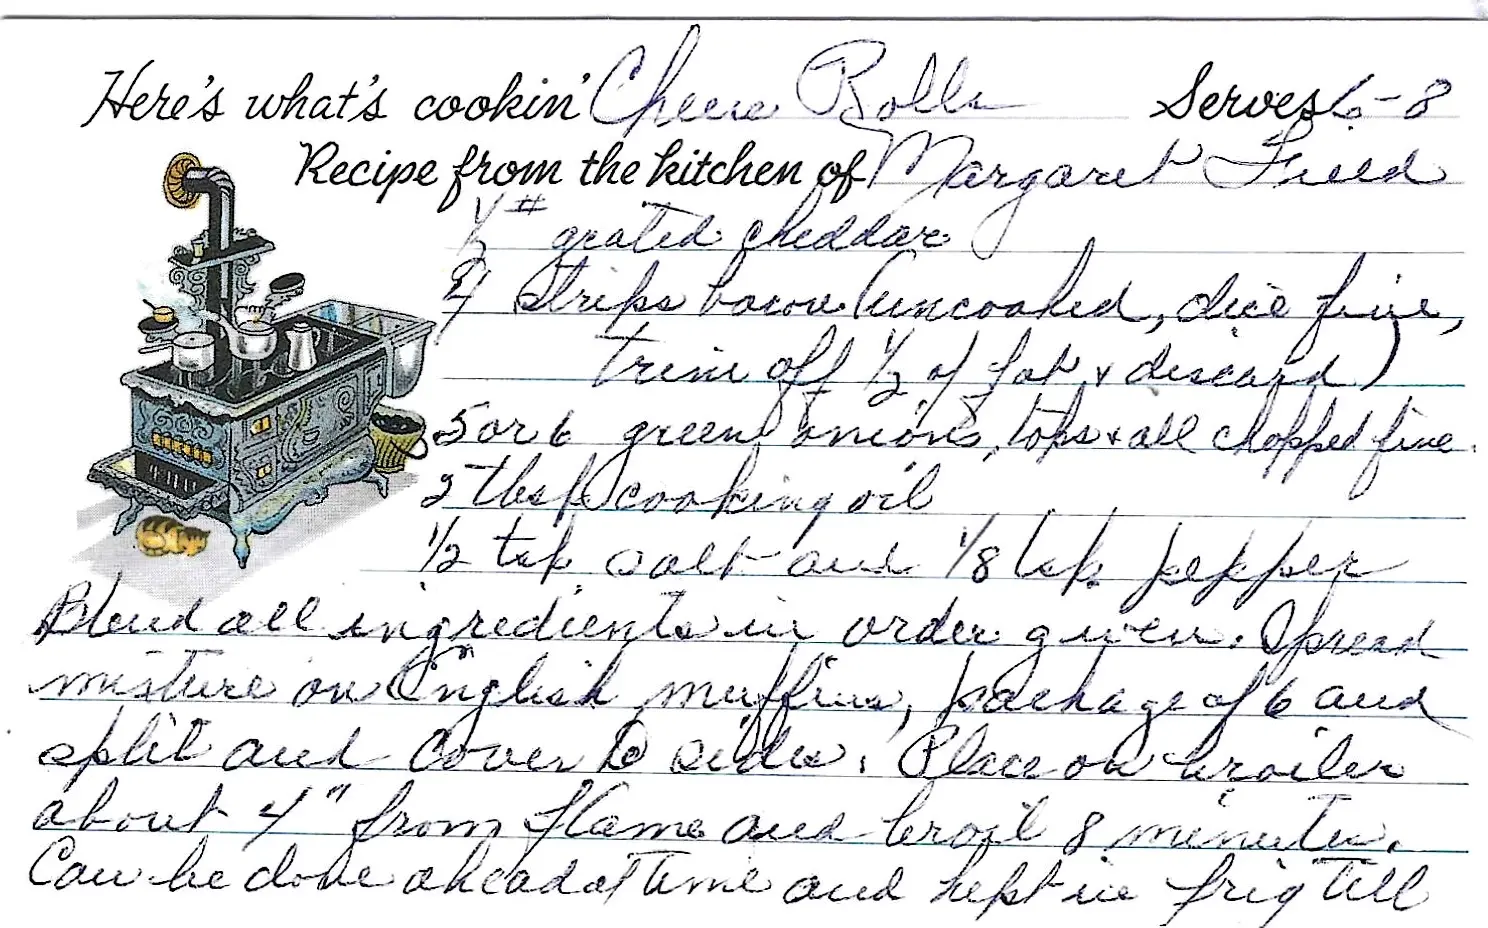 Here's what's cookin' Cheese Rolls Serves 6-8
Recipe from the kitchen of Margaret
1/2 # grated cheddar
4 strips bacon (uncooked, dice fine,
trim off 1/2 of fat & discard)
5 or 6 green onions, tops & all chopped fine.
2 tbsp cooking oil
1/2 tsp salt and 1/8 tsp. pepper
Blend all ingredients in order given. Spread
mixture on English muffins, package of 6 and
split and cover to sides. Place on broiler
about 4" from flame and broil 8 minutes.
Can be done ahead of time and kept in frig till